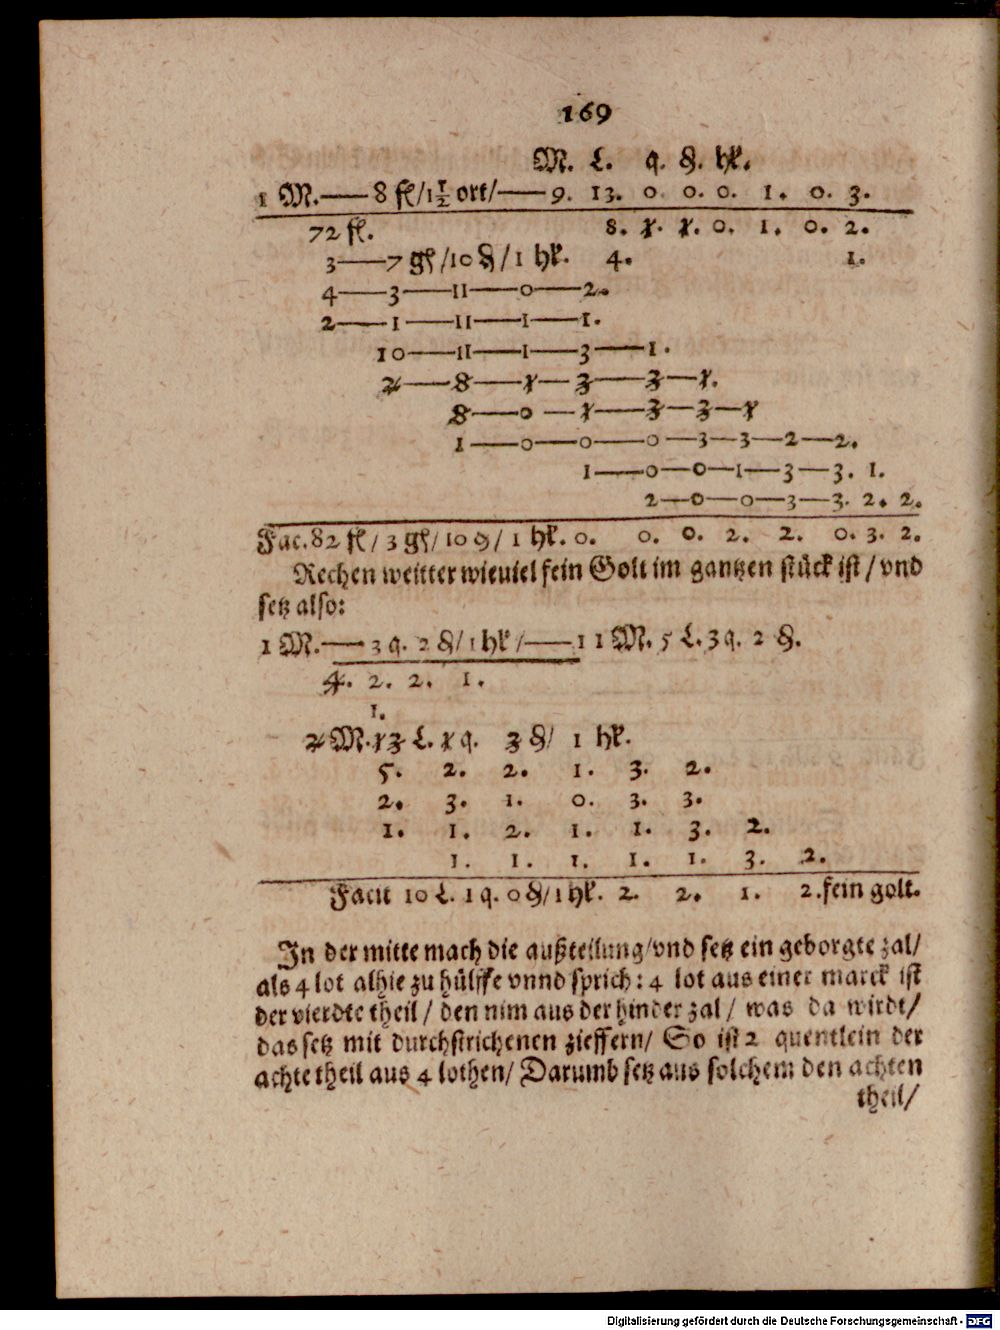 169
M. L. q. ₰. hl.
1 M.—— 8 fl/1½ ort/—— 9. 13. 0 0. 0. 1. 0. 3.
72 fl. 8. 1. 1. 0. 1. 0. 2.
3——7 gl /10 ₰/1 hl. 4. 1.
4——3——11——0——2.
2——1——11——1——1.
10——11——1——3——1.
2——8——1——3——3——1.
8——0——1——3——3——1
1——0——0——0——3——3——2——2.
1——0——0——1——3——3. 1.
2——0——0——3——3. 2. 2.
Fac. 82 fl/ 3 gl/ 10 ₰/ 1 hl. 0. 0. 0. 2. 2. 0. 3. 2.
Rechen weitter wieuiel fein Golt im gantzen stück ist / vnd
setz also:
1 M.—— 3 q. 2 ₰/ 1 hl /——11 M. 5 L. 3 q. 2 ₰.
4. 2. 2. 1.
1.
2 M. 13 L. 1 q. 3 ₰/ 1 hl.
5. 2. 2. 1. 3. 2.
2. 3. 1. 0. 3. 3.
1. 1. 2. 1. 1. 3. 2.
1. 1. 1. 1. 1. 3. 2.
Facit 10 L. 1 q. 0 ₰/ 1 hl. 2. 2. 1. 2. fein golt.
In der mitte mach die außteilung/ vnd setz ein geborgte zal/
als 4 lot alhie zu hülffe vnnd sprich: 4 lot aus einer marck ist
der vierdte theil / den nim aus der hinder zal / was da wirdt/
das setz mit durchstrichenen zieffern/ So ist 2 quentlein der
achte theil aus 4 lothen/ Darumb setz aus solchem den achten
theil/
Digitalisierung gefördert durch die Deutsche Forschungsgemeinschaft - DFG